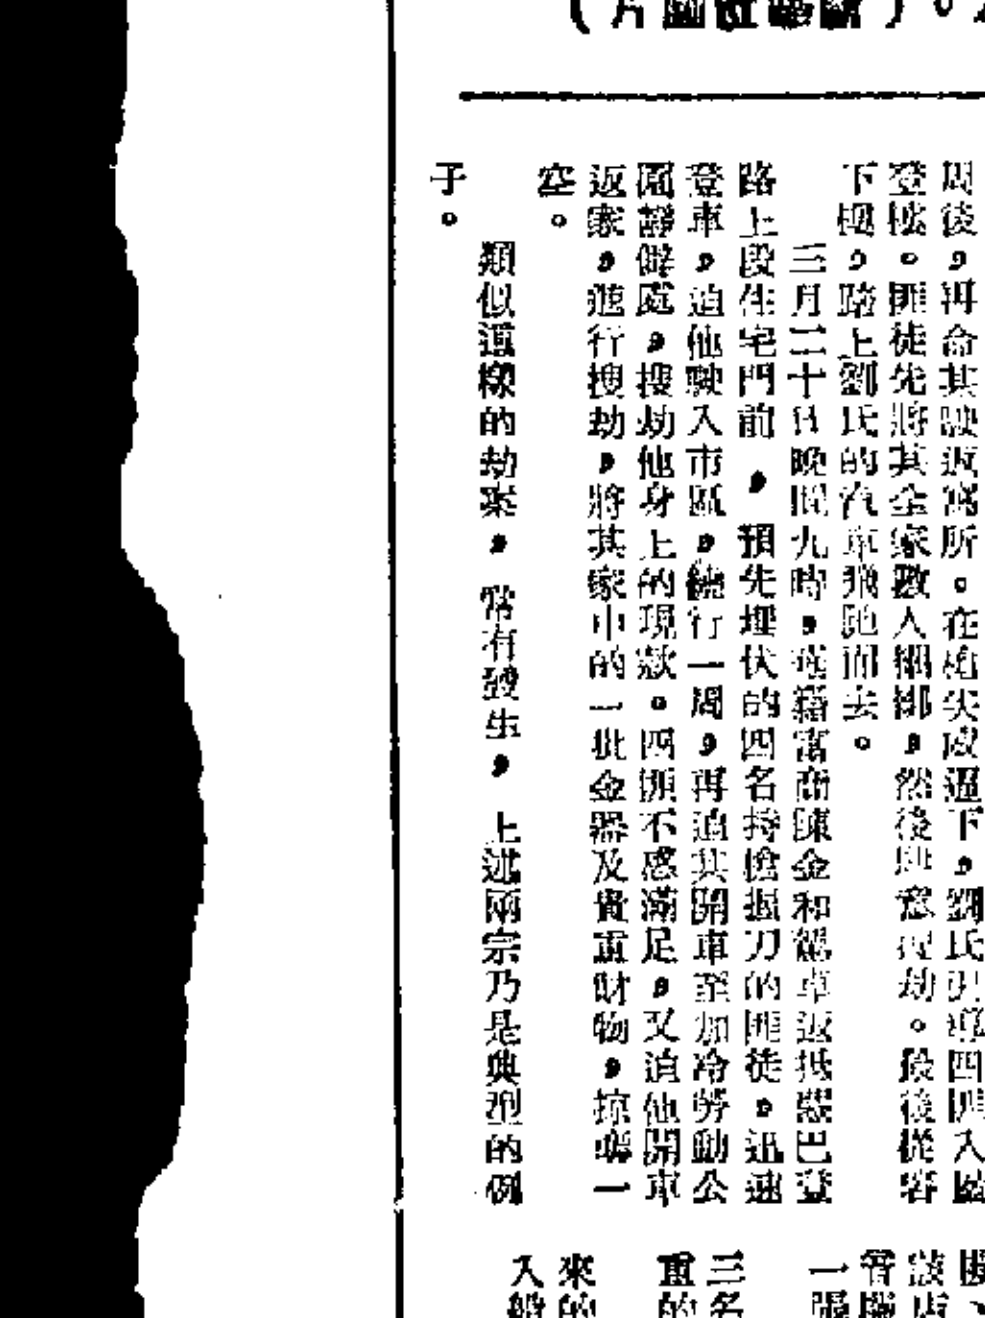 周後，再命其駛返寓所。在槍尖威逼下，劉氏引導四匪入屋
登樓。匪徒先將其全家數人綑綁，然後肆意搜劫。最後從容
下樓，踏上劉氏的汽車飛馳而去。
三月二十日晚間九時，華籍富商陳金和駕車返抵惹巴登
路上段住宅門前，預先埋伏的四名持槍握刀的匪徒，迅速
登車，迫他駛入市區，繞行一周，再迫其開車至加冷勞動公
園靜僻處，搜劫他身上的現款。四匪不感滿足，又迫他開車
返家，進行搜劫，將其家中的一批金器及貴重財物，掠奪一
空。
類似這樣的劫案，常有發生，上述兩宗乃是典型的例
子。
三名
重的
來的
入